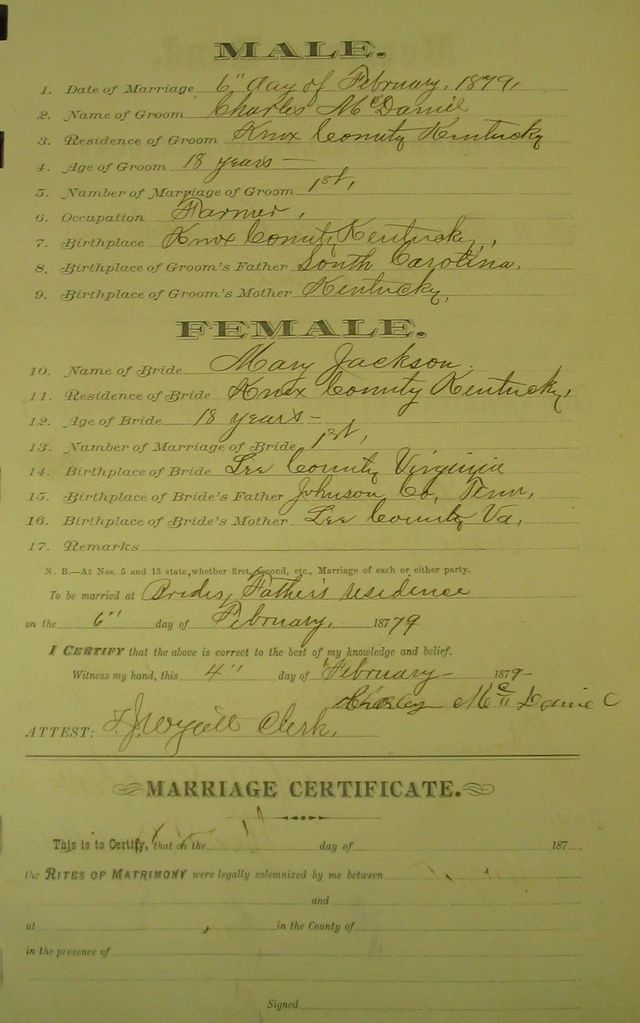 MALE.
1. Date of Marriage 6" day of February, 1879,
2. Name of Groom Charles McDaniel
3. Residence of Groom Knox County Kentucky
4. Age of Groom 18 years —
5. Number of Marriage of Groom 1st,
6. Occupation Farmer,
7. Birthplace Knox County Kentucky,
8. Birthplace of Groom's Father South Carolina.
9. Birthplace of Groom's Mother Kentucky,
FEMALE.
10. Name of Bride Mary Jackson
11. Residence of Bride Knox County Kentucky,
12. Age of Bride 18 years —
13. Number of Marriage of Bride 1st,
14. Birthplace of Bride Lee County Virginia
15. Birthplace of Bride's Father Johnson Co, Tenn,
16. Birthplace of Bride's Mother Lee County Va,
17. Remarks
N. B.—At Nos. 5 and 13 state, whether first, second, etc., Marriage of each or either party.
To be married at Brides, Father's residence
on the 6" day of February, 1879
I CERTIFY that the above is correct to the best of my knowledge and belief.
Witness my hand, this 4" day of February 1879
Charley McDaniel
ATTEST: Clerk,
MARRIAGE CERTIFICATE.
This is to Certify, that on the day of 187
the RITES OF MATRIMONY were legally solemnized by me between
and
at in the County of
in the presence of
Signed